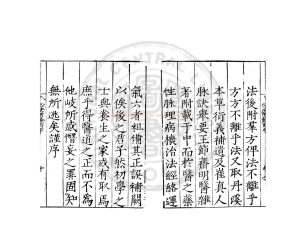 法後附羣方俾法不離乎
方方不離乎法又取丹溪
本草衍義補遺及崔真人
脉訣舉要王節齋明醫雜
著附載于中而於醫之藥
性脉理病機治法經絡運
氣六者粗備其正誤補闕
以俟後之君子然初學之
士與養生之家或有取焉
庶乎得醫道之正而不為
他岐所惑僣妄之罪固知
無所逃矣謹序